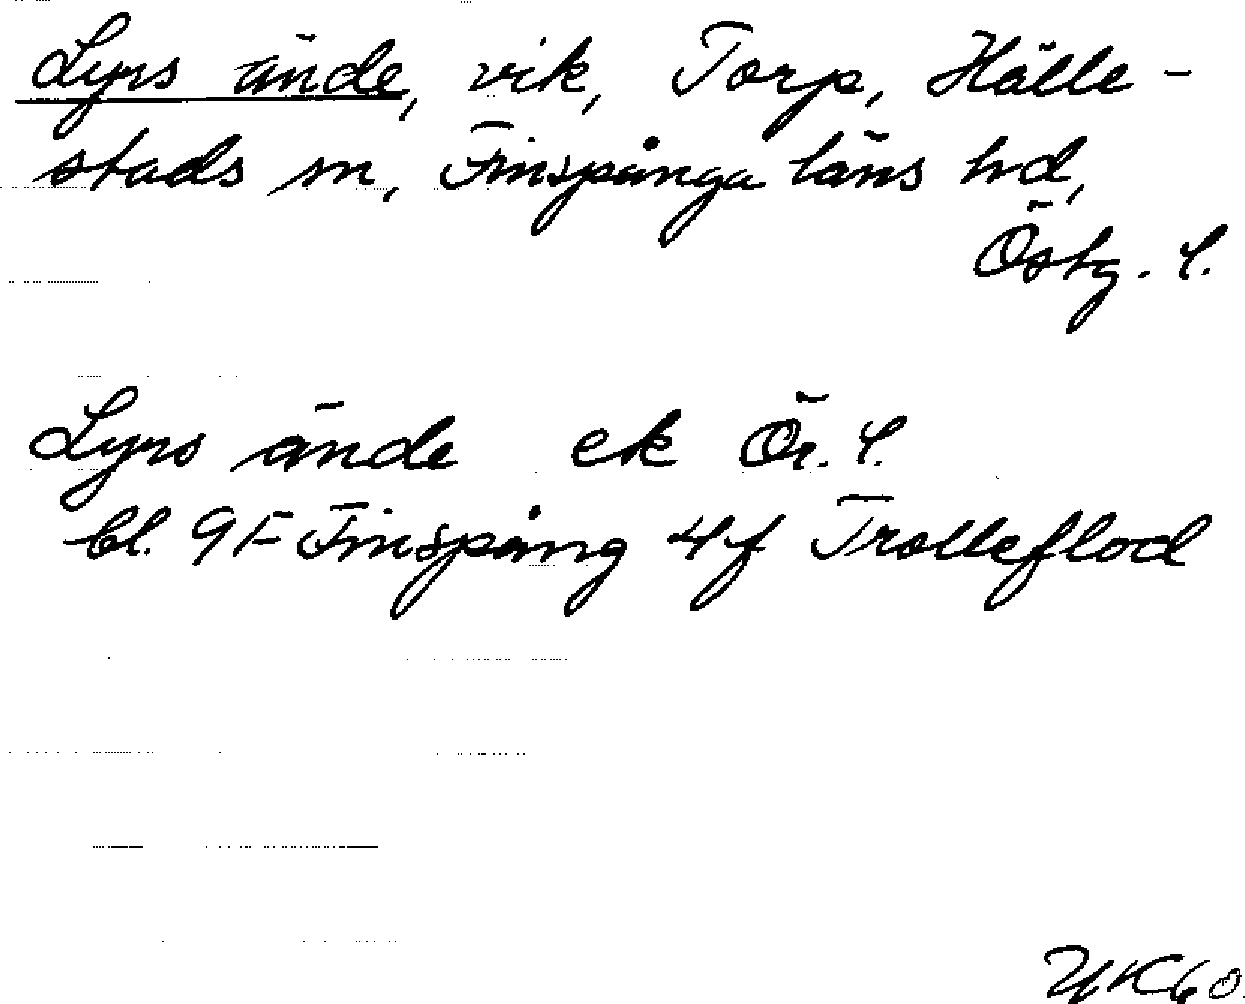 Lyrs ände, vik, Torp, Hälle-
stads sn, Finspånga läns hd,
Östg. l.
Lyrs ände ek Ör. l.
bl. 9F Finspång 4f Trolleflod